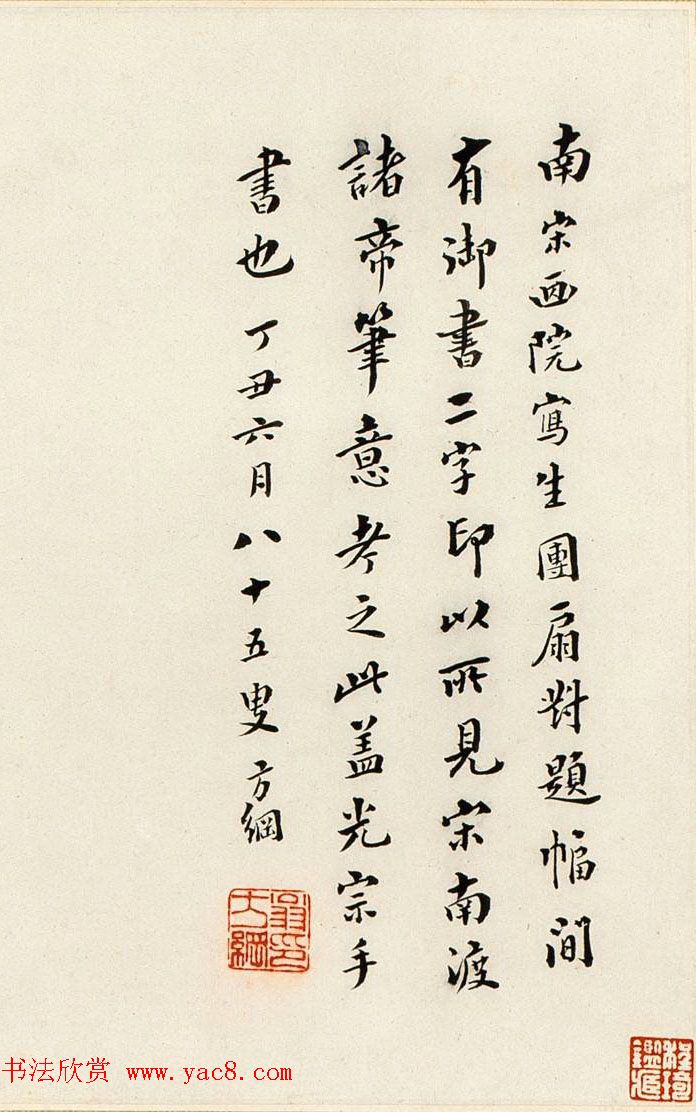 南宋画院寫生團扇對題幅間
有御書二字印以所見宋南渡
諸帝筆意考之此盖光宗手
書也丁丑六月八十五叟方綱
翁方綱印
书法欣赏 www.yac8.com